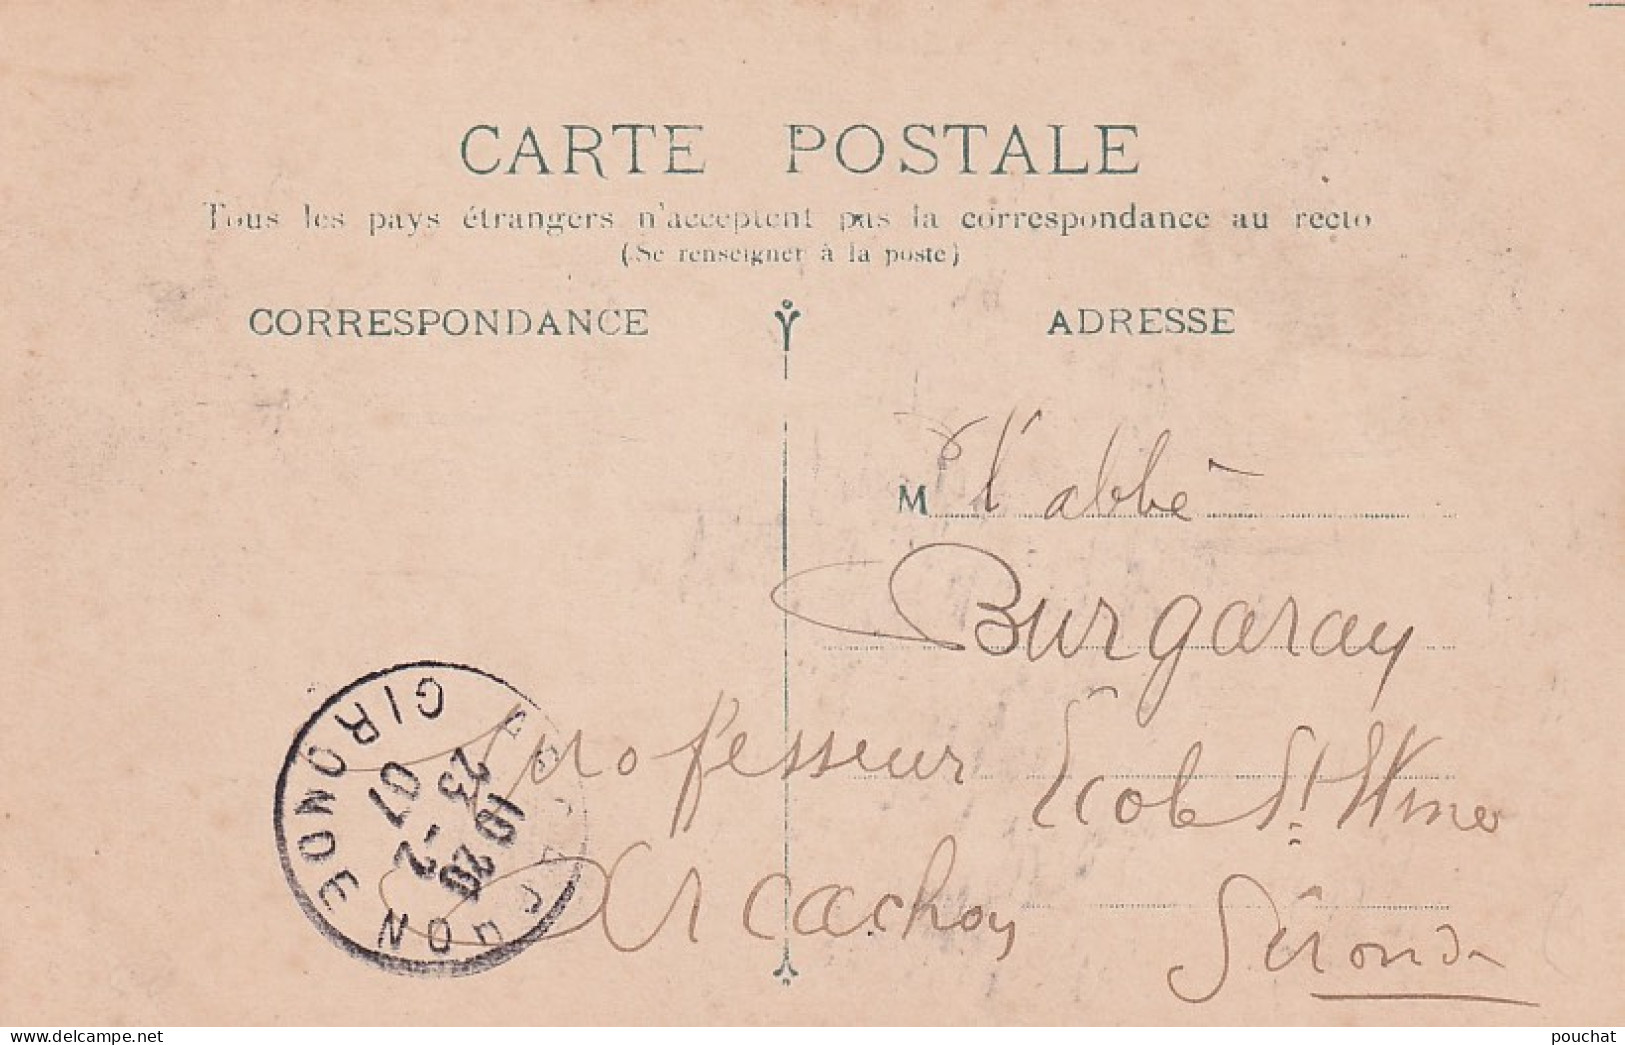 CARTE POSTALE
Tous les pays étrangers n'acceptent pas la correspondance au recto
(Se renseigner à la poste)
CORRESPONDANCE
ADRESSE
M l'abbé
Burgaray
professeur Ecole St
Arcachon Gironde
ARCACHON GIRONDE
10 20
23 - 2
07
pouchat